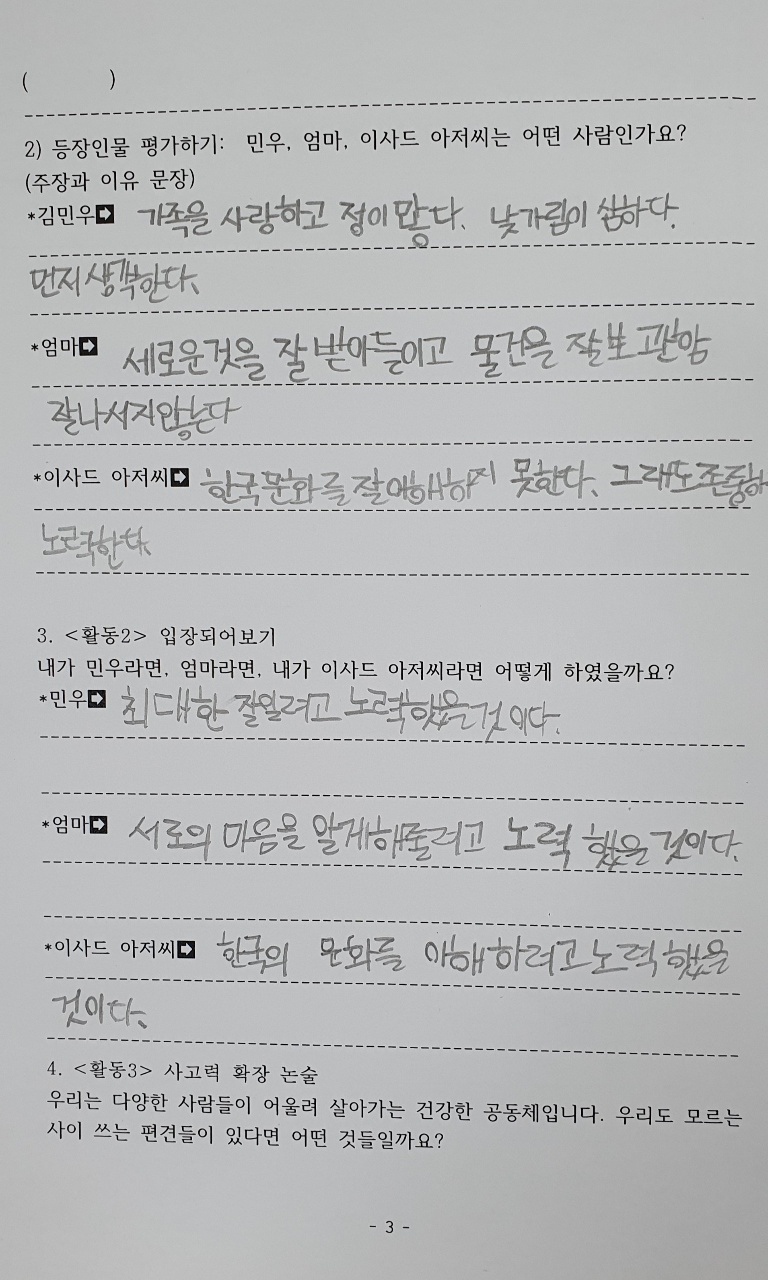 (          )
2) 등장인물 평가하기: 민우, 엄마, 이사드 아저씨는 어떤 사람인가요?
(주장과 이유 문장)
*김민우➡ 가족을 사랑하고 정이 많다. 낯가림이 심하다.
먼저 생각한다.
*엄마➡ 세로운것을 잘 받아들이고 물건을 잘 보관함
잘나서지않는다
*이사드 아저씨➡ 한국문화를 잘이해하지 못한다. 그래도존중하
노력한다.
3. <활동2> 입장되어보기
내가 민우라면, 엄마라면, 내가 이사드 아저씨라면 어떻게 하였을까요?
*민우➡ 최대한 잘일려고 노력했을것이다.
*엄마➡ 서로의 마음을 알게해줄려고 노력 했을 것이다.
*이사드 아저씨➡ 한국의 문화를 이해하려고노력했을
것이다.
4. <활동3> 사고력 확장 논술
우리는 다양한 사람들이 어울려 살아가는 건강한 공동체입니다. 우리도 모르는
사이 쓰는 편견들이 있다면 어떤 것들일까요?
- 3 -